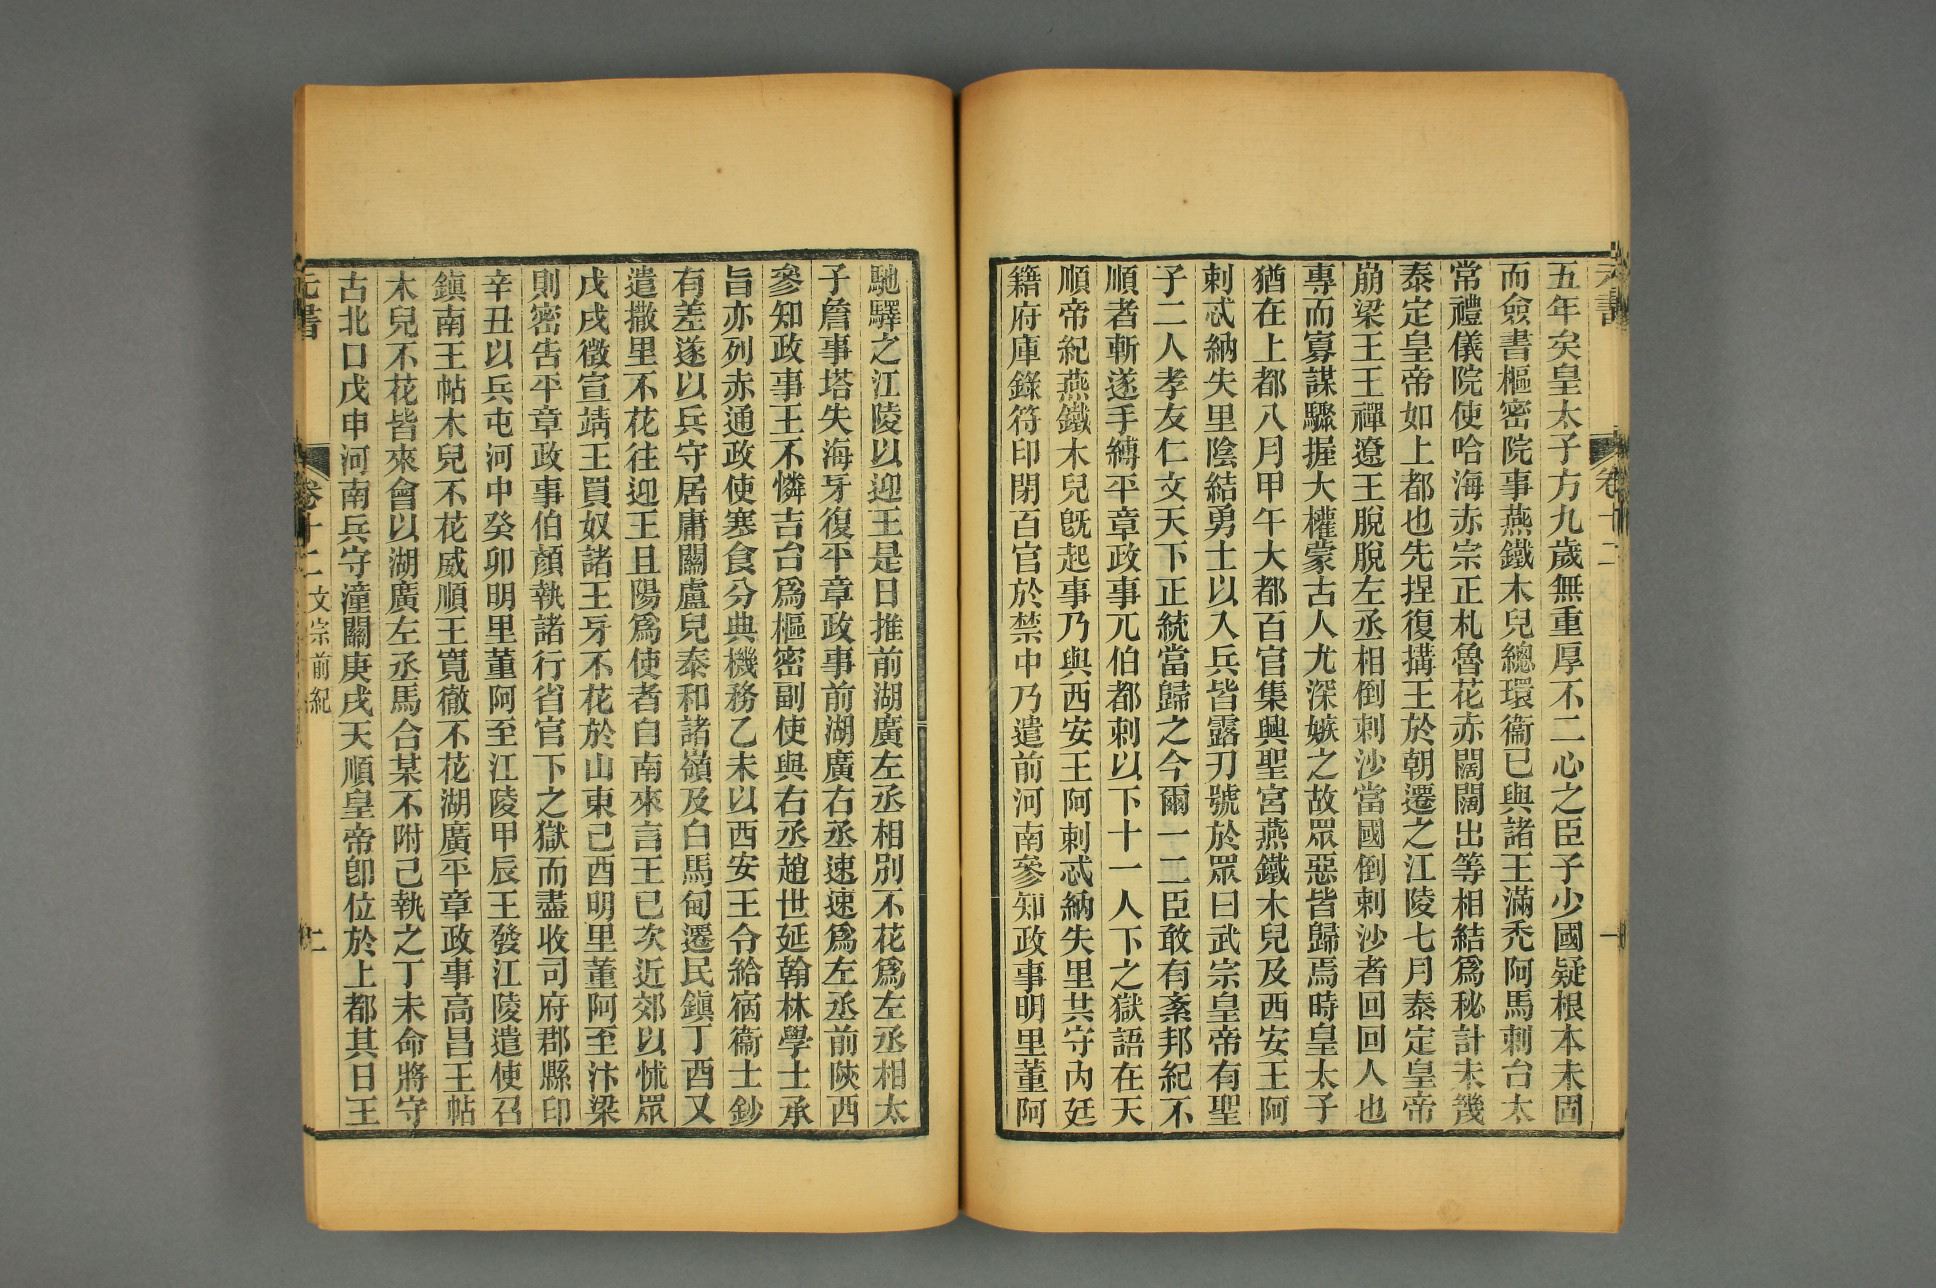 元書
卷十二
一
五年矣皇太子方九歲無重厚不二心之臣子少國疑根本未固
而僉書樞密院事燕鐵木兒總環衞已與諸王滿禿阿馬剌台太
常禮儀院使哈海赤宗正札魯花赤闊闊出等相結爲秘計未幾
泰定皇帝如上都也先捏復搆王於朝遷之江陵七月泰定皇帝
崩梁王王禪遼王脫脫左丞相倒剌沙當國倒剌沙者回回人也
專而寡謀驟握大權蒙古人尤深嫉之故眾惡皆歸焉時皇太子
猶在上都八月甲午大都百官集興聖宮燕鐵木兒及西安王阿
剌忒納失里陰結勇士以入兵皆露刃號於眾曰武宗皇帝有聖
子二人孝友仁文天下正統當歸之今爾一二臣敢有紊邦紀不
順者斬遂手縛平章政事兀伯都剌以下十一人下之獄語在天
順帝紀燕鐵木兒旣起事乃與西安王阿剌忒納失里共守內廷
籍府庫錄符印閉百官於禁中乃遣前河南參知政事明里董阿
馳驛之江陵以迎王是日推前湖廣左丞相別不花爲左丞相太
子詹事塔失海牙復平章政事前湖廣右丞速速爲左丞前陝西
參知政事王不憐吉台爲樞密副使與右丞趙世延翰林學士承
旨亦列赤通政使寒食分典機務乙未以西安王令給宿衞士鈔
有差遂以兵守居庸關盧兒泰和諸嶺及白馬甸遷民鎭丁酉又
遣撒里不花往迎王且陽爲使者自南來言王已次近郊以怵眾
戊戌徵宣靖王買奴諸王㝵不花於山東己酉明里董阿至汴梁
則密告平章政事伯顏執諸行省官下之獄而盡收司府郡縣印
辛丑以兵屯河中癸卯明里董阿至江陵甲辰王發江陵遣使召
鎭南王帖木兒不花威順王寬徹不花湖廣平章政事高昌王帖
木兒不花皆來會以湖廣左丞馬合某不附己執之丁未命將守
古北口戊申河南兵守潼關庚戌天順皇帝卽位於上都其日王
元書
卷十二
文宗前紀
二